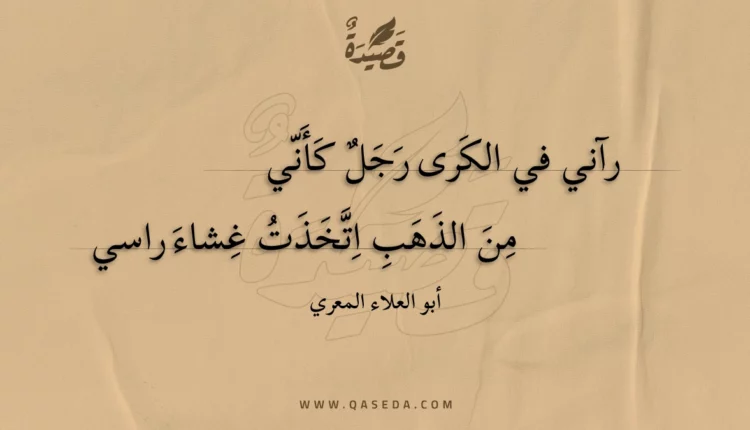 قَصِيدَةٌ
رآني في الكَرى رَجَلٌ كَأَنّي
مِنَ الذَهَبِ اِتَّخَذَتُ غِشاءَ راسي
أبو العلاء المعري
WWW.QASEDA.COM